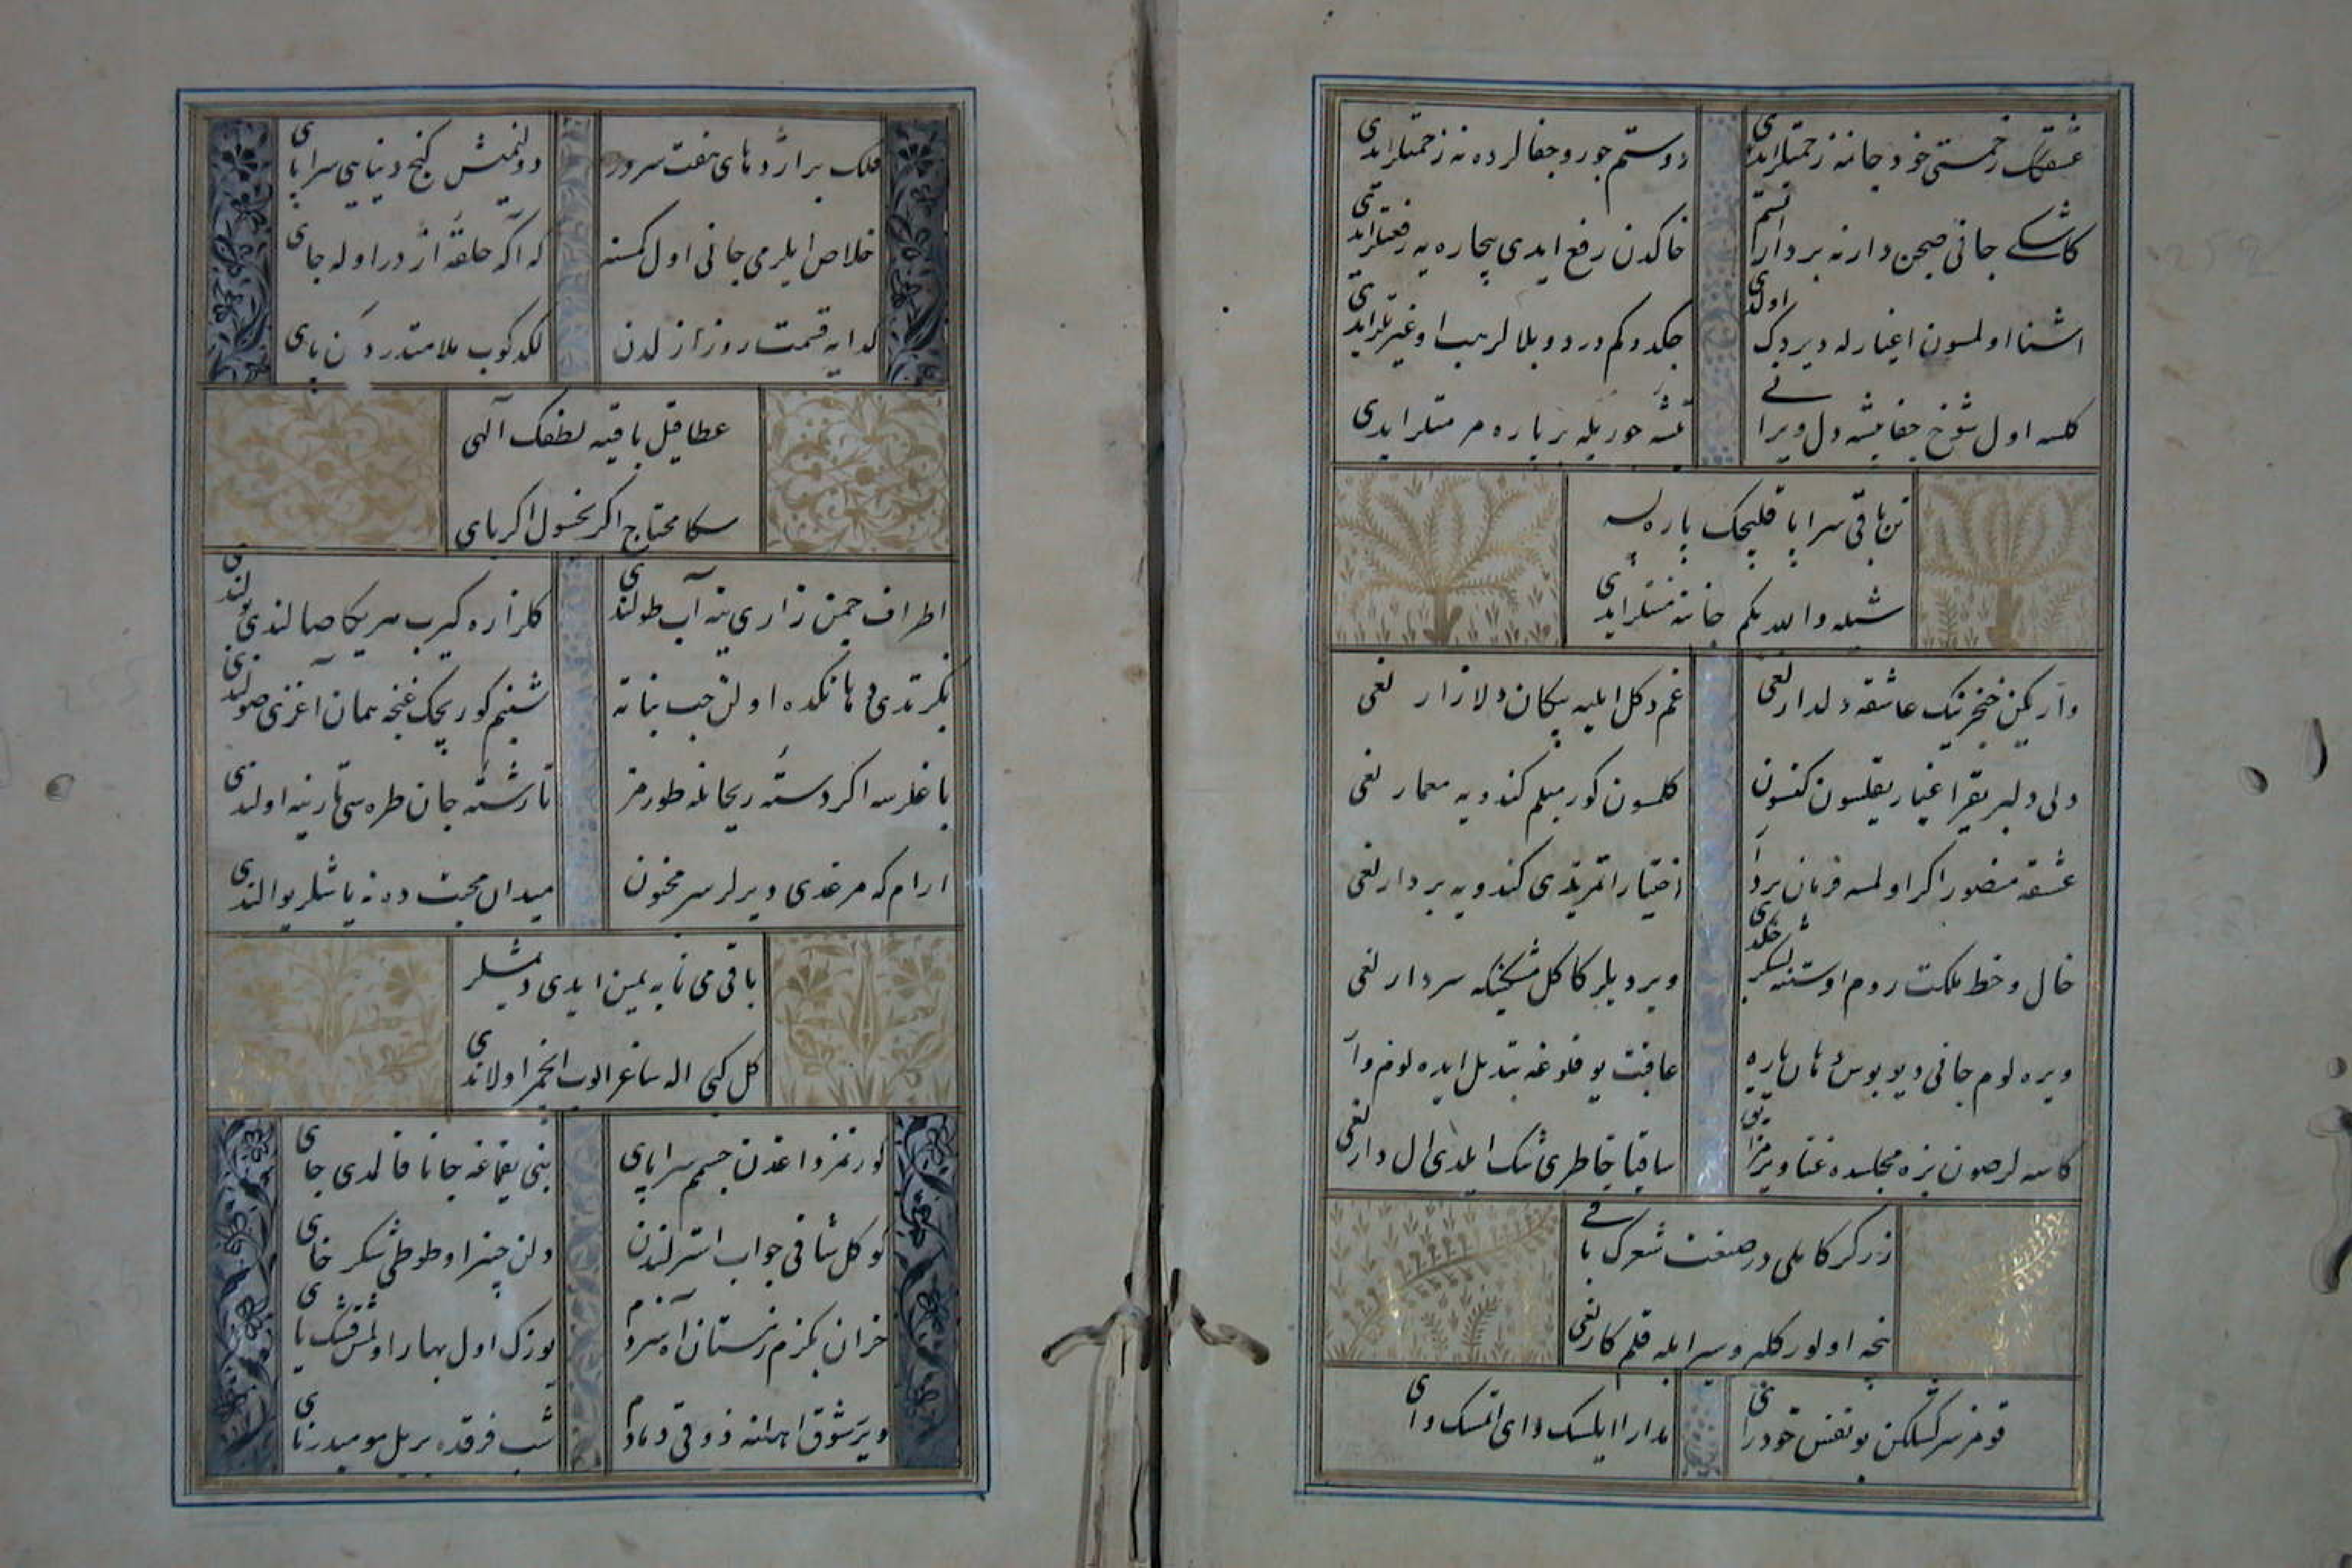 عشقك زخمتی خود جانمه زحمتلر ایدی
دوستم جور و جفالر ده نه زحمتلر ایدی
کاشکے جانی صیچن دارنه بردار اتسم
خاکدن رفع ایدی بیچاره یه رفعتلر ایدی
اشنا اولمسون اغیارله دیردک اولدی
چکدوکم درد و بلالر هب او غیرتلر ایدی
کلسه اول شوخ جفا پیشه دل ویرانے
تیشه جوریله بر پاره مرمتلر ایدی
تن باقی سراپا قلیچک پاره لسه
شیله والله بکم جانه منتلر ایدی
وار یکن خنجرینک عاشقه دلدارلغی
غم دکل ایلیه پیکان دلازارلغی
دلی دلبر یقر اغیار یقلسون کتسون
کلسون کورمیلم کندویه معمارلغی
عشقه منصور اکر اولمسه فرمان بردار
اختیار اتمزیدی کندویه بردارلغی
خال و خط ملکت روم اوستنه لشکر چکدی
ویردیلر کاکل مشکینکه سردارلغی
ویره لوم جانی دیو بوس دهان یاره
عاقبت یوقلوغه تبدیل ایده لوم وارلغی
کاسه لر صون بزه مجلسده غنا ویرمز اتی
ساقیا خاطری تنک ایلدی ال دارلغی
زرکر کاملی در صنعت شعرک باقے
نیجه اولور کله و سیر ایله قلمکارلغی
قومز سرکشلکن بو نفس خودرای
مدارا ایلسک وای اتمسک وای
فلک بر اژدهای هفت سردر
دولنمیش کنج دنیایی سراپای
خلاص ایلرمی جانی اول کمسنه
که اکه حلقهٔ اژدر اوله جای
کدایه قسمت روز ازلدن
لکدکوب ملامتدر دکن پای
عطا قیل باقیه لطفک آلهی
سکا محتاج اکر یخسول اکر بای
اطراف چمن زاری ینه آب طولندی
کلزاره کیرب سریکا صالندی بولندی
بکزتدی دهانکده اولن حب نباته
شبنم کوریجک غنچه همان آغزی صولندی
باغلرسه اکر دستهٔ ریحانله طورمز
تا رشتهٔ جان طره سی تارینه اولندی
ارام که مرقدی دیرلر سر مجنون
میدان محبتده نه باشلر یوالندی
باقی می نابه یمین ایدی دیمشلر
کل کبی اله ساغر الوب انجمر اولاندی
کورنمز داغدن جسم سراپای
بنی یقماغه جانا قالمدی جای
کوکل شافی جواب استر لبندن
دلن چینر او طوطی شکر خای
خزان بکزم زمستان آه سردم
یوزک اول بهار اولمش قشک یای
ویر شوق اهلنه ذوقی دمادم
شب فرقده بریل سو میدر نای